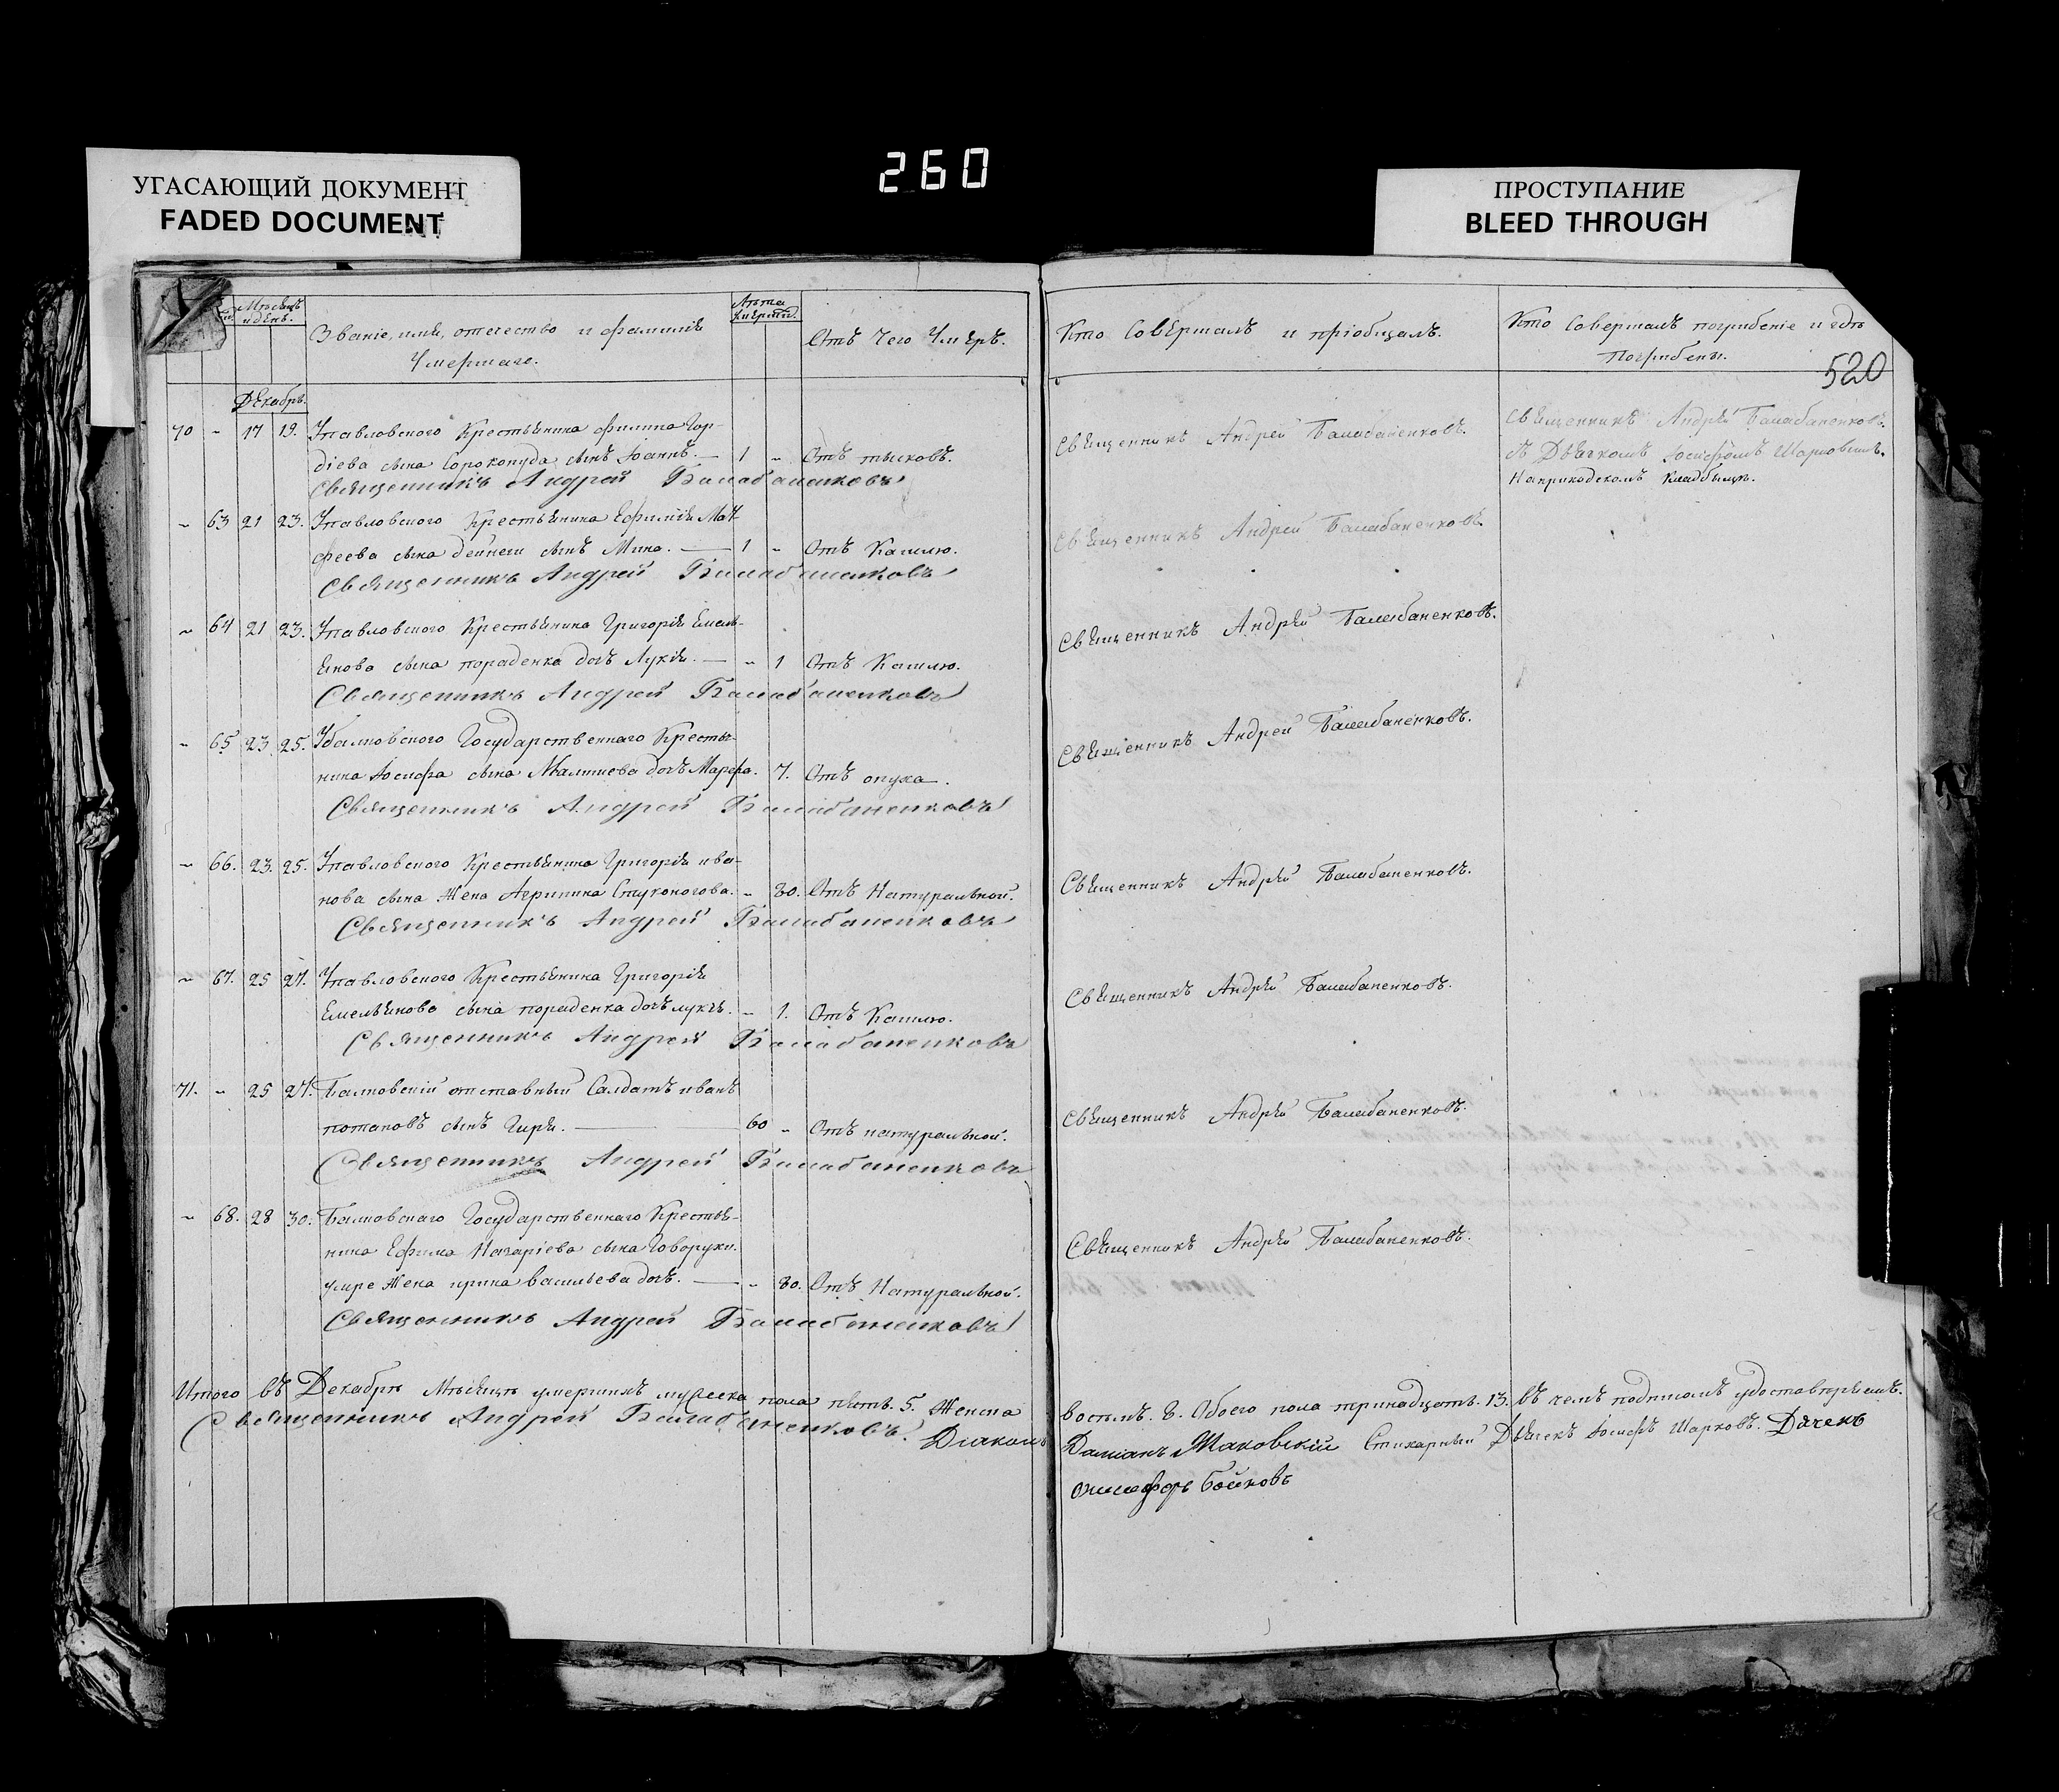 260
УГАСАЮЩИЙ ДОКУМЕНТ
FADED DOCUMENT
ПРОСТУПАНИЕ
BLEED THROUGH
Мѣсяцъ
и день.
Званіе, имя, отечество и фамилія
Умершаго.
Лѣта
Отъ чего Умеръ.
Кто Совершалъ и пріобщалъ.
Кто Совершалъ погребеніе и гдѣ
Погребены.
520
Декабрь.
70 - 17 19. Упавловского Крестьянина филипа Гор-
діева сына Сорокопуда сынъ Іоаннъ. — 1 - Отъ
Священникъ Андрей Балабаненковъ
Священникъ Андрей Балабаненковъ.
Священникъ Андрей Балабаненковъ.
съ Дьячкомъ Іосифомъ
Наприходскомъ Кладбищѣ.
- 63 21 23. Упавловского Крестьянина Ефимія Мат-
феева сына сынъ Мина. — 1 - Отъ Кашлю.
Священникъ Андрей Балабаненковъ
Священникъ Андрей Балабаненковъ.
- 64 21 23. Упавловского Крестьянина Григорія Емель-
янова сына пораденка дочь Лукія. — - 1 Отъ Кашлю.
Священникъ Андрей Балабаненковъ
Священникъ Андрей Балабаненковъ.
- 65 23 25. Государственнаго Крестья-
нина Іосифа сына дочь Марфа. 7. Отъ опуха.
Священникъ Андрей Балабаненковъ
Священникъ Андрей Балабаненковъ.
- 66. 23. 25. Упавловского Крестьянина Григорія ива-
нова сына Жена Агрипина Стуконогова. - 80. Отъ Натуральной.
Священникъ Андрей Балабаненковъ
Священникъ Андрей Балабаненковъ.
- 67. 25 27. Упавловского Крестьянина Григорія
Емельянова сына пораденка дочь - 1. Отъ Кашлю.
Священникъ Андрей Балабаненковъ
Священникъ Андрей Балабаненковъ.
71. - 25 27. отставный Салдатъ иванъ
потаповъ сынъ Гиря. — 60 - Отъ натуральной.
Священникъ Андрей Балабаненковъ
Священникъ Андрей Балабаненковъ.
- 68. 28 30. Государственнаго Крестья-
нина Ефима Назаріева сына Говорухи.
умре Жена ирина васильева дочь. — - 80. Отъ Натуральной.
Священникъ Андрей Балабаненковъ
Священникъ Андрей Балабаненковъ.
Итого въ Декабрѣ Мѣсяцѣ умершихъ мужеска пола пять. 5. Женска
восемь. 8. Обоего пола тринадцать. 13. въ чемъ подписомъ удостовѣряемъ.
Священникъ Андрей Балабаненковъ. Діаконъ
Даміанъ Маковскій Стихарный Дьячекъ Іосифъ Шарковъ. Дячекъ
Онисифоръ Бойковъ